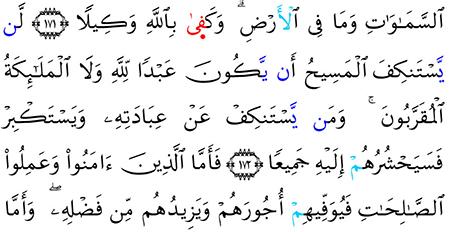 ٱلسَّمَـٰوَٰتِ وَمَا فِى ٱلْأَرْضِ ۗ وَكَفَىٰ بِٱللَّهِ وَكِيلًا ﴿١٧١﴾ لَّن
يَسْتَنكِفَ ٱلْمَسِيحُ أَن يَكُونَ عَبْدًا لِّلَّهِ وَلَا ٱلْمَلَـٰٓئِكَةُ
ٱلْمُقَرَّبُونَ ۚ وَمَن يَسْتَنكِفْ عَنْ عِبَادَتِهِۦ وَيَسْتَكْبِرْ
فَسَيَحْشُرُهُمْ إِلَيْهِ جَمِيعًا ﴿١٧٢﴾ فَأَمَّا ٱلَّذِينَ ءَامَنُوا۟ وَعَمِلُوا۟
ٱلصَّـٰلِحَـٰتِ فَيُوَفِّيهِمْ أُجُورَهُمْ وَيَزِيدُهُم مِّن فَضْلِهِۦ ۖ وَأَمَّا